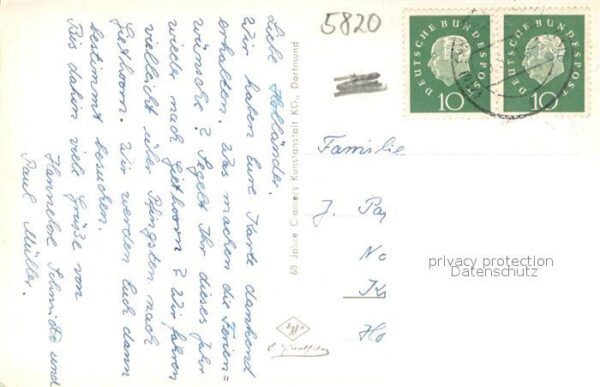 5820
DEUTSCHE BUNDESPOST
10
DEUTSCHE BUNDESPOST
10
Liebe Holländer.
Wir haben Eure Karte dankend
erhalten. Was machen die Ferien=
wünsche? Segelt Ihr dieses Jahr
wieder nach Giethoorn? Wir fahren
vielleicht über Pfingsten nach
Giethoorn. Wir werden Euch dann
bestimmt besuchen.
Bis dahin viele Grüße von
Hannelore Schmidts und
Paul Müller.
60 Jahre Cramers Kunstanstalt KG., Dortmund
Familie
J. Pa
No
Kr
Ho
privacy protection
Datenschutz